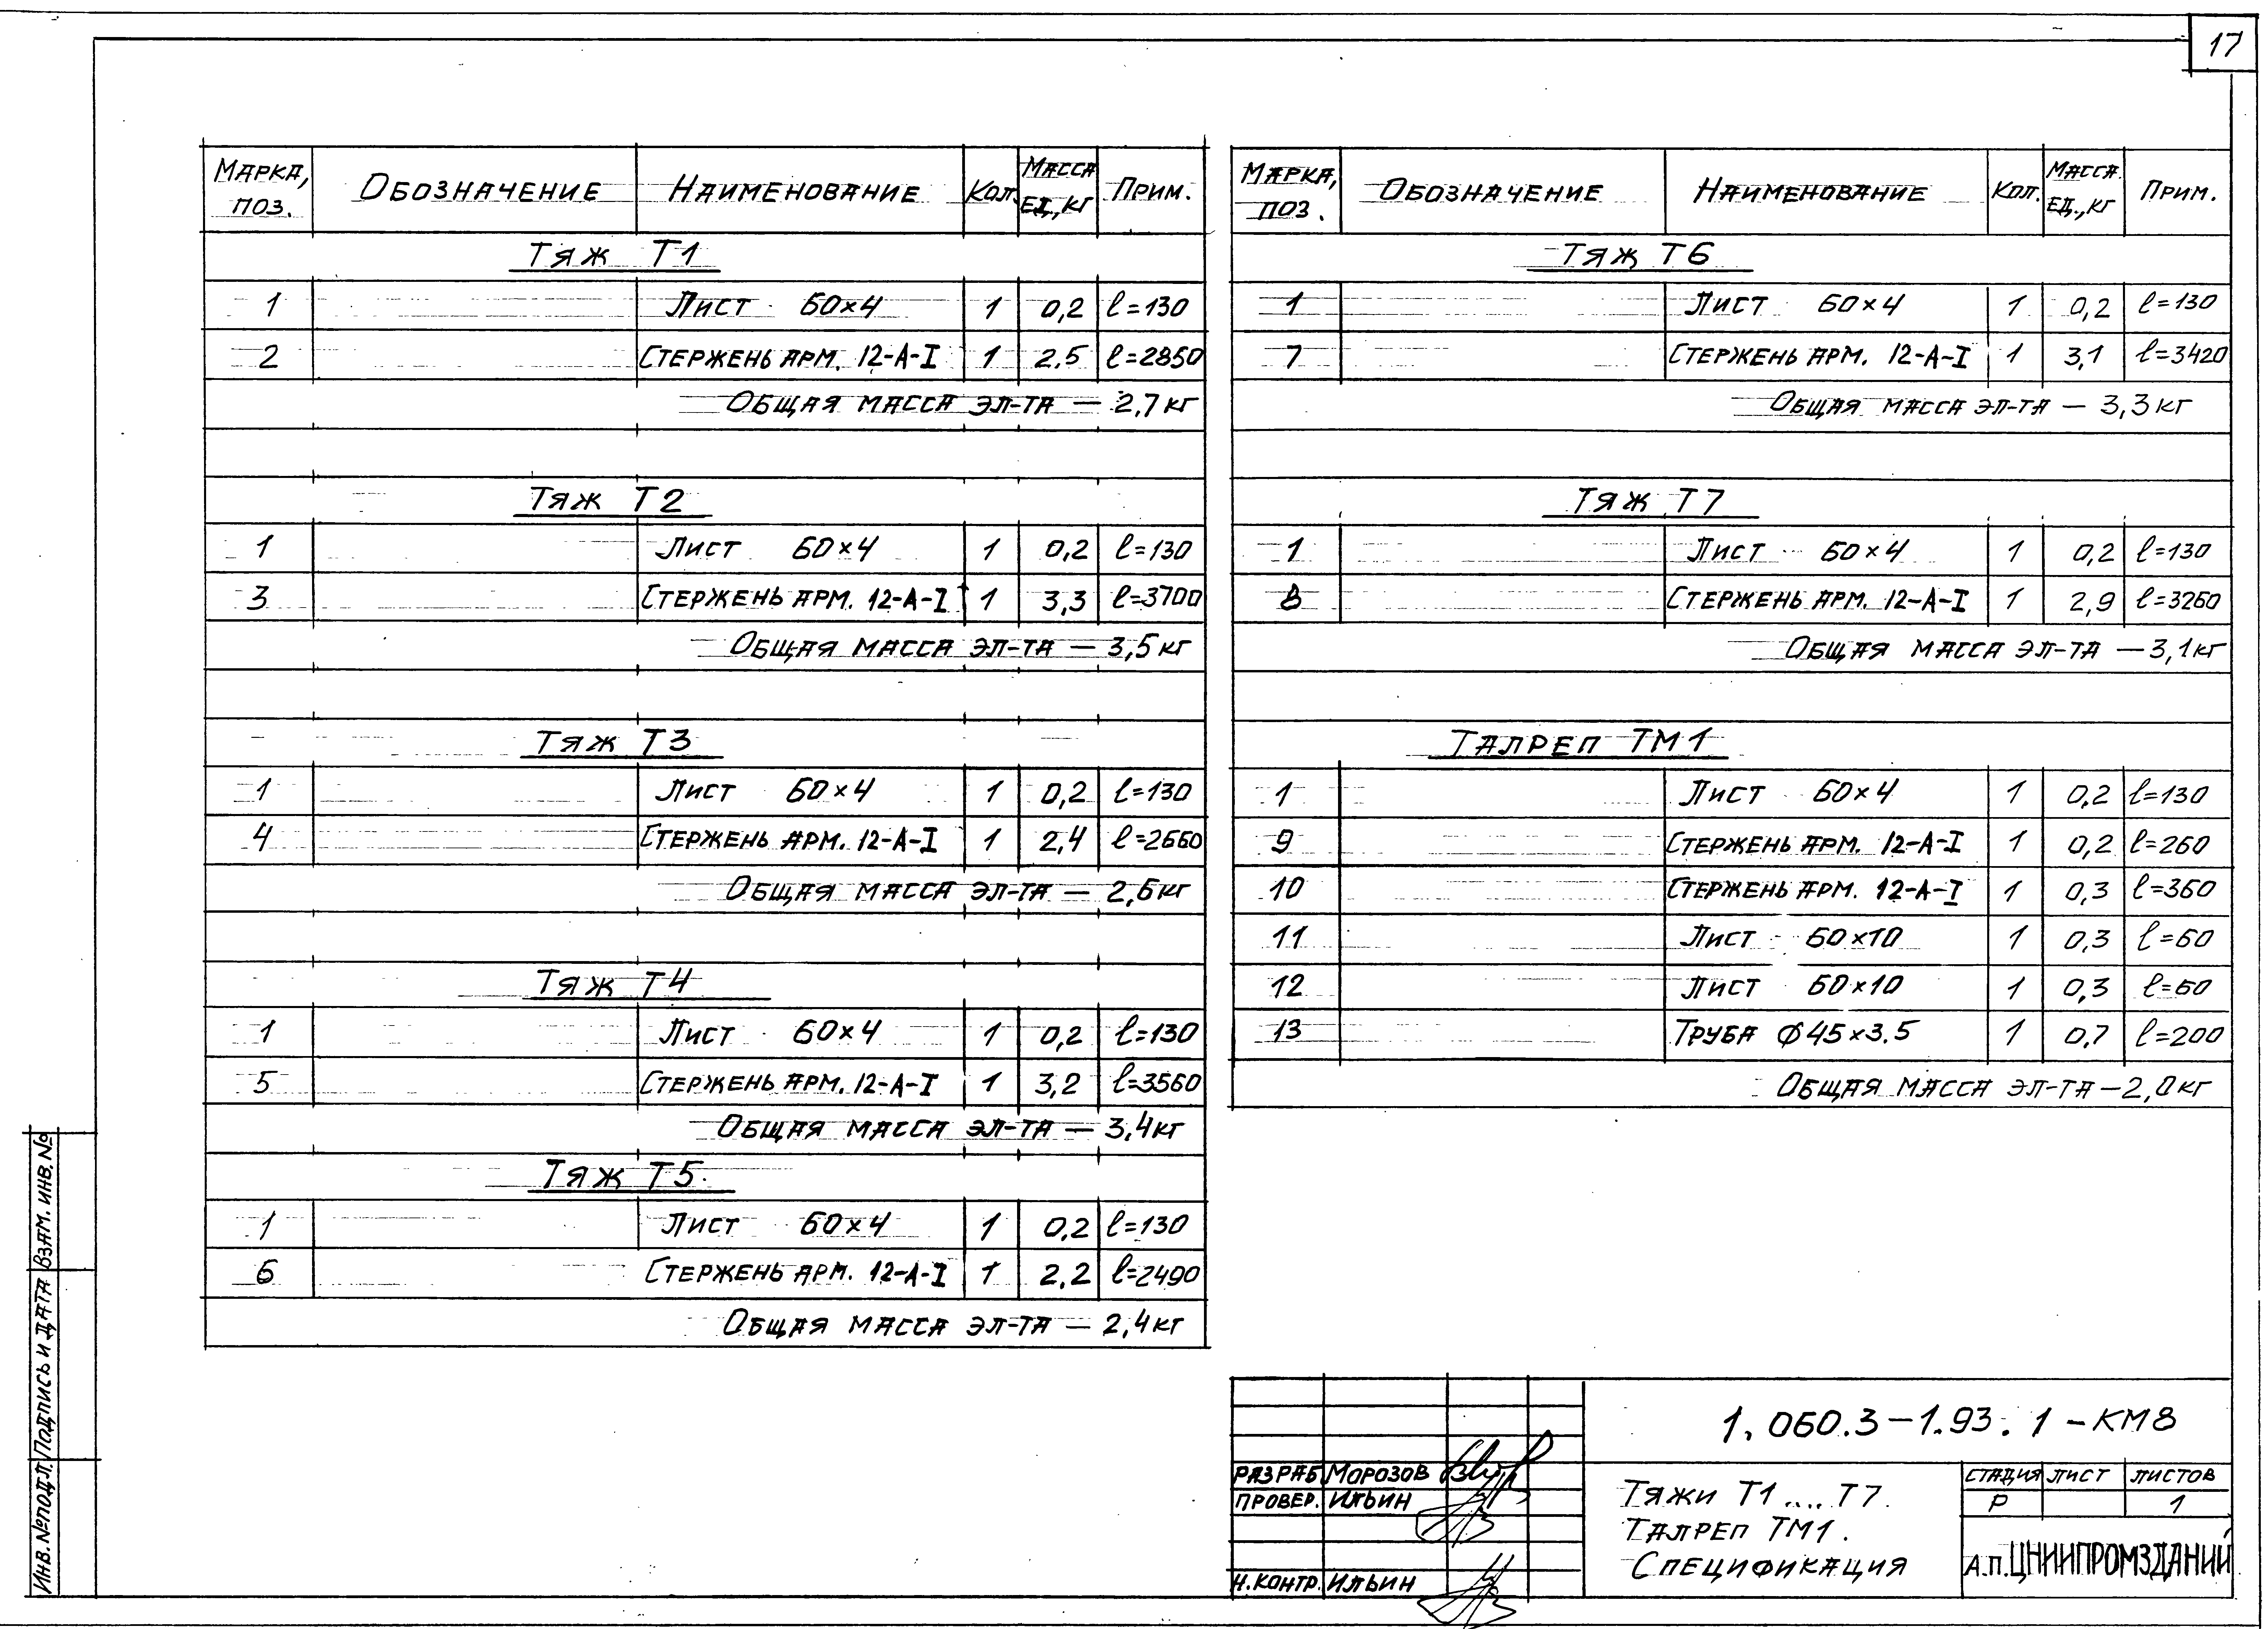 17
МАРКА, ПОЗ. ОБОЗНАЧЕНИЕ НАИМЕНОВАНИЕ КОЛ. МАССА ЕД., КГ ПРИМ.
ТЯЖ Т1
1 ЛИСТ 60×4 1 0,2 ℓ=130
2 СТЕРЖЕНЬ АРМ. 12-А-I 1 2,5 ℓ=2850
ОБЩАЯ МАССА ЭЛ-ТА — 2,7 КГ
ТЯЖ Т2
1 ЛИСТ 60×4 1 0,2 ℓ=130
3 СТЕРЖЕНЬ АРМ. 12-А-I 1 3,3 ℓ=3700
ОБЩАЯ МАССА ЭЛ-ТА — 3,5 КГ
ТЯЖ Т3
1 ЛИСТ 60×4 1 0,2 ℓ=130
4 СТЕРЖЕНЬ АРМ. 12-А-I 1 2,4 ℓ=2660
ОБЩАЯ МАССА ЭЛ-ТА — 2,6 КГ
ТЯЖ Т4
1 ЛИСТ 60×4 1 0,2 ℓ=130
5 СТЕРЖЕНЬ АРМ. 12-А-I 1 3,2 ℓ=3560
ОБЩАЯ МАССА ЭЛ-ТА — 3,4 КГ
ТЯЖ Т5
1 ЛИСТ 60×4 1 0,2 ℓ=130
6 СТЕРЖЕНЬ АРМ. 12-А-I 1 2,2 ℓ=2490
ОБЩАЯ МАССА ЭЛ-ТА — 2,4 КГ
МАРКА, ПОЗ. ОБОЗНАЧЕНИЕ НАИМЕНОВАНИЕ КОЛ. МАССА ЕД., КГ ПРИМ.
ТЯЖ Т6
1 ЛИСТ 60×4 1 0,2 ℓ=130
7 СТЕРЖЕНЬ АРМ. 12-А-I 1 3,1 ℓ=3420
ОБЩАЯ МАССА ЭЛ-ТА — 3,3 КГ
ТЯЖ Т7
1 ЛИСТ 60×4 1 0,2 ℓ=130
8 СТЕРЖЕНЬ АРМ. 12-А-I 1 2,9 ℓ=3260
ОБЩАЯ МАССА ЭЛ-ТА — 3,1 КГ
ТАЛРЕП ТМ1
1 ЛИСТ 60×4 1 0,2 ℓ=130
9 СТЕРЖЕНЬ АРМ. 12-А-I 1 0,2 ℓ=260
10 СТЕРЖЕНЬ АРМ. 12-А-I 1 0,3 ℓ=360
11 ЛИСТ 60×10 1 0,3 ℓ=60
12 ЛИСТ 60×10 1 0,3 ℓ=60
13 ТРУБА Ф 45×3.5 1 0,7 ℓ=200
ОБЩАЯ МАССА ЭЛ-ТА — 2,0 КГ
1.060.3-1.93.1-КМ8
РАЗРАБ МОРОЗОВ
ПРОВЕР. ИЛЬИН
Н.КОНТР. ИЛЬИН
ТЯЖИ Т1....Т7.
ТАЛРЕП ТМ1.
СПЕЦИФИКАЦИЯ
СТАДИЯ ЛИСТ ЛИСТОВ
Р 1
А.П. ЦНИИПРОМЗДАНИЙ
ИНВ.№ПОДЛ. ПОДПИСЬ И ДАТА ВЗАМ. ИНВ.№